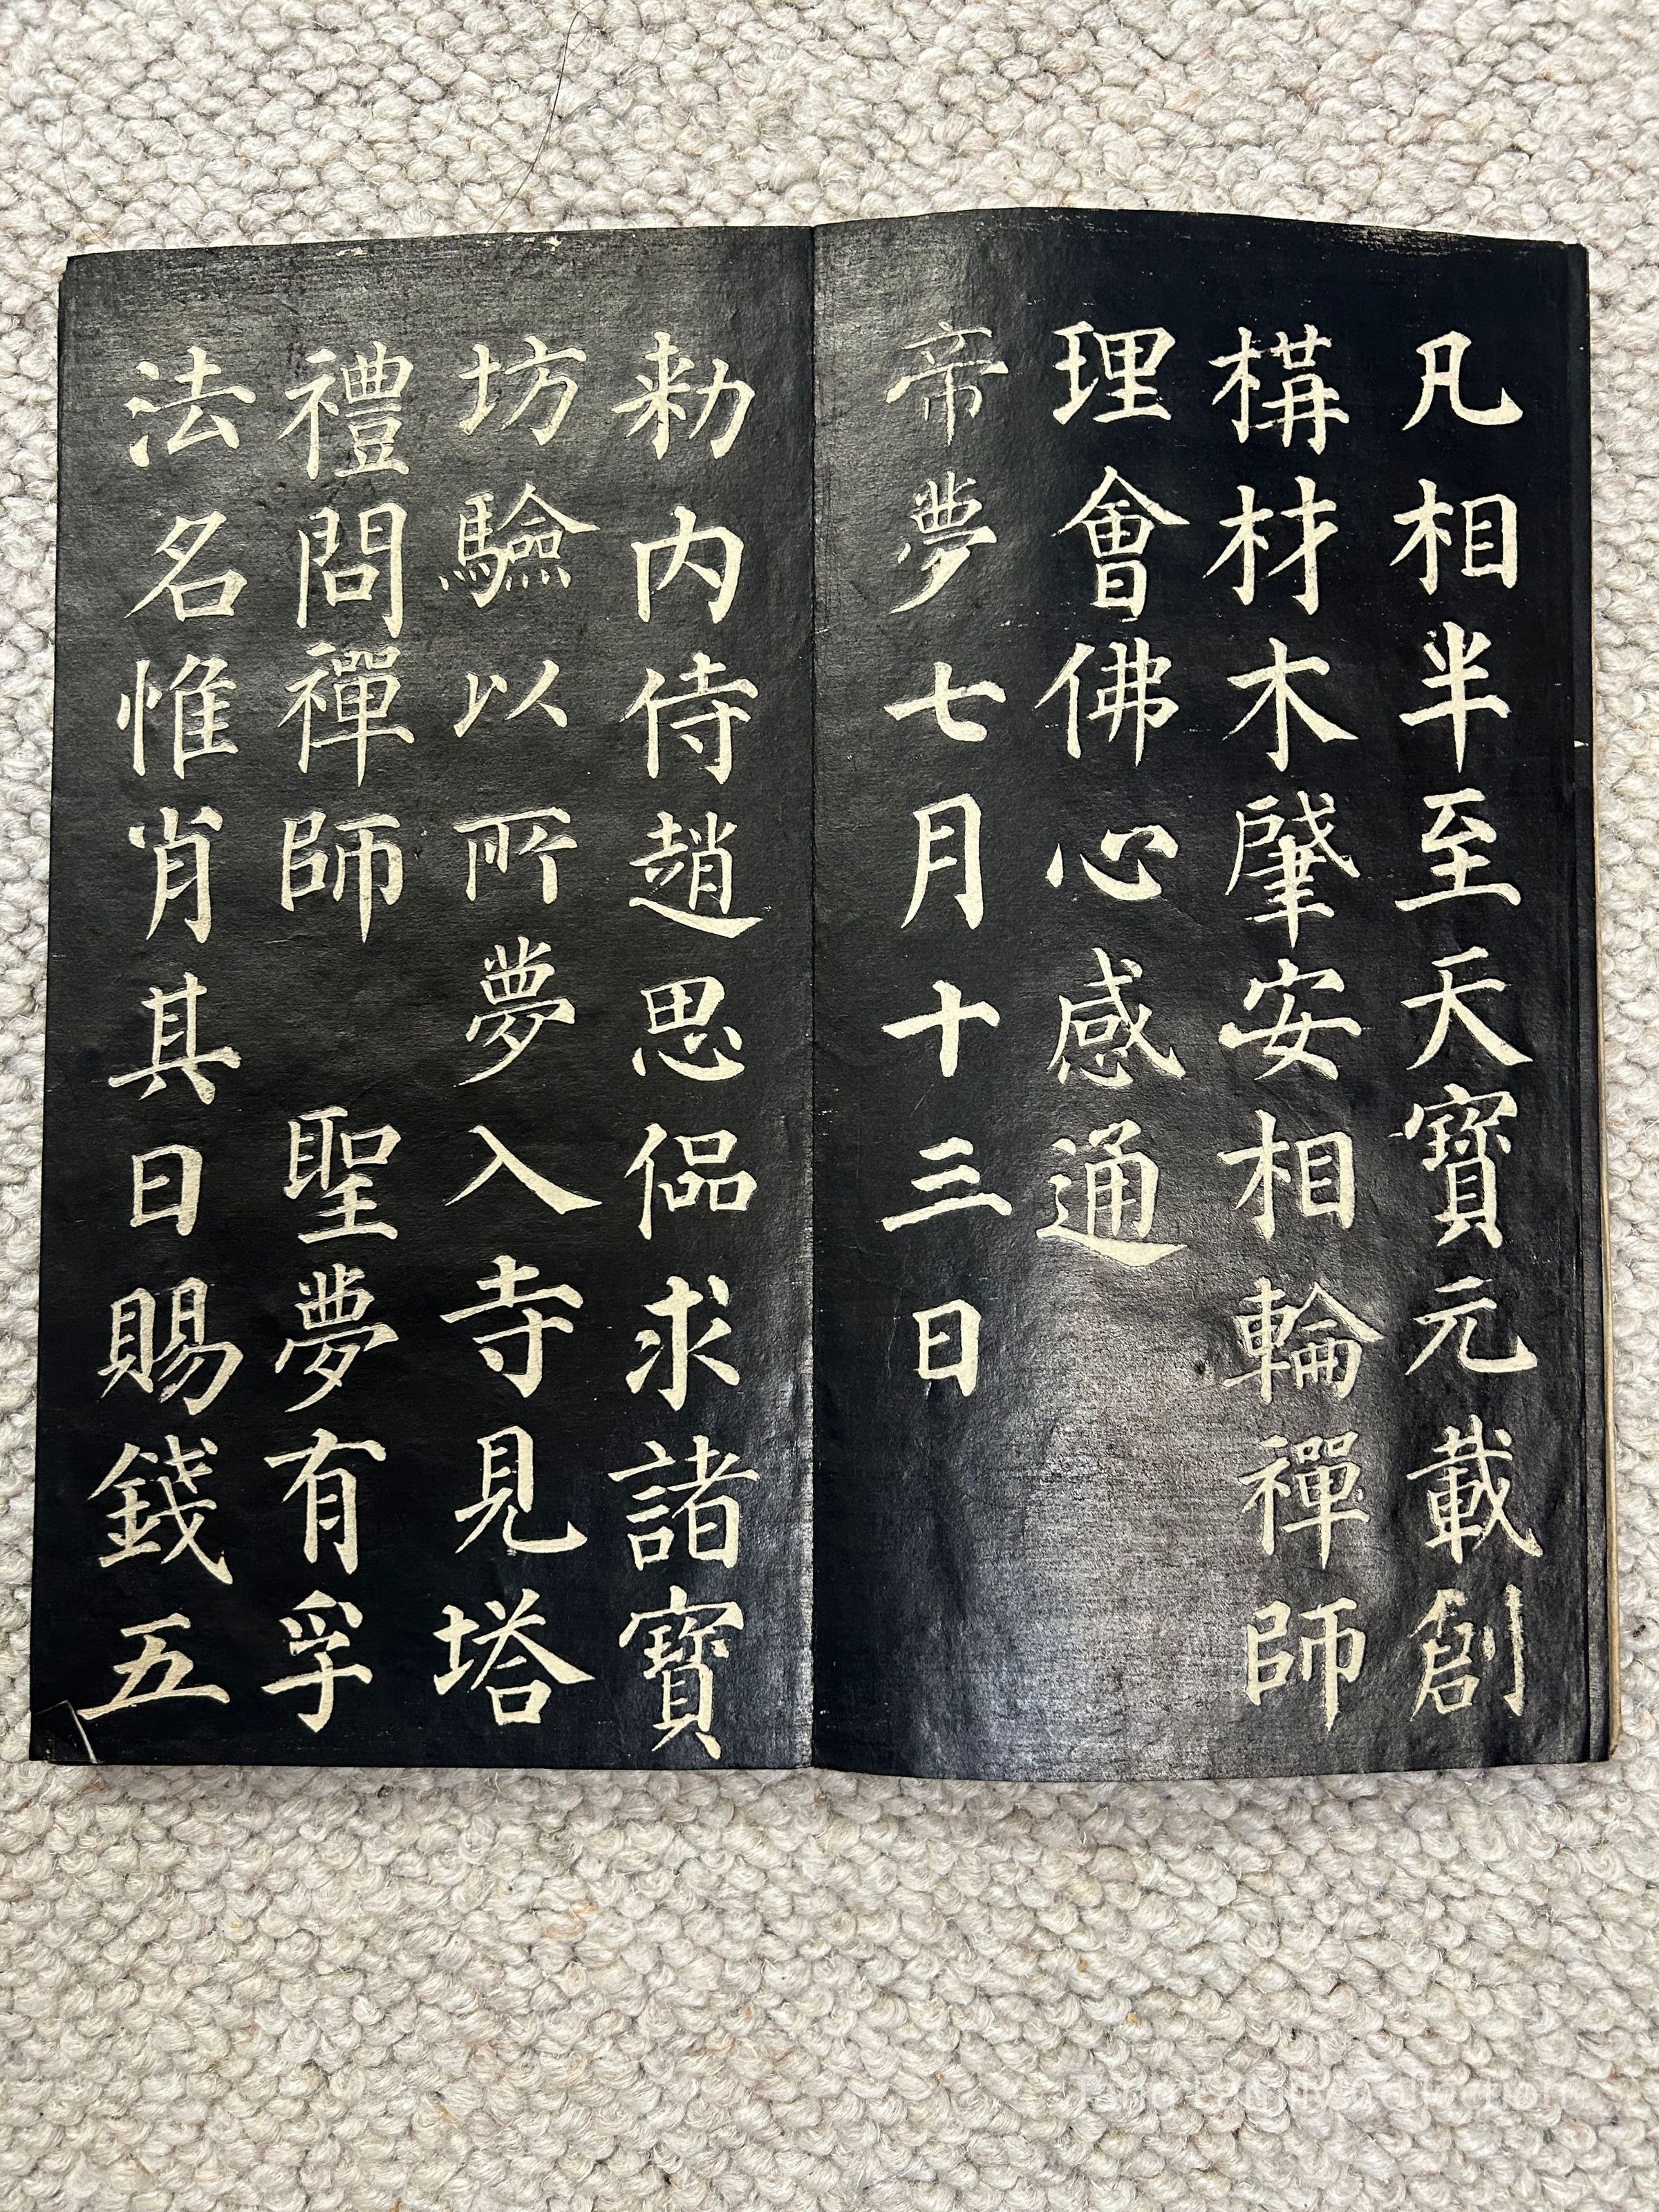 凡相半至天寶元載創
構材木肇安相輪禪師
理會佛心感通
帝夢七月十三日
勑内侍趙思侃求諸寶
坊驗以所夢入寺見塔
禮問禪師　聖夢有孚
法名惟肖其日賜錢五
Tang Family Collection